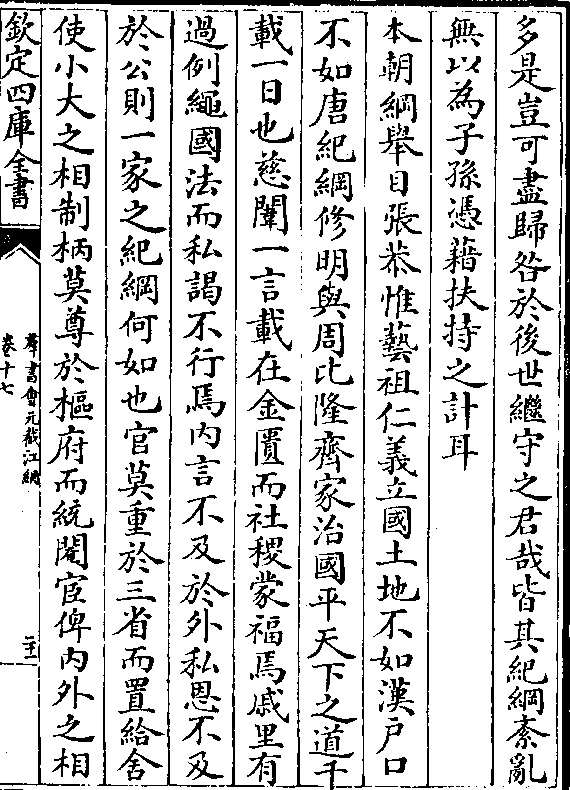 多是豈可盡歸咎於後世繼守之君哉皆其紀綱紊亂
無以為子孫憑藉扶持之計耳
本朝綱舉目張恭惟藝祖仁義立國土地不如漢戶口
不如唐紀綱修明與周比隆齊家治國平天下之道千
載一日也慈闈一言載在金匱而社稷蒙福焉戚里有
過例繩國法而私謁不行焉内言不及於外私恩不及
於公則一家之紀綱何如也官莫重於三省而置給舍
使小大之相制柄莫尊於樞府而統閹宦俾内外之相
欽定四庫全書
羣書會元截江網
卷十七
二十一